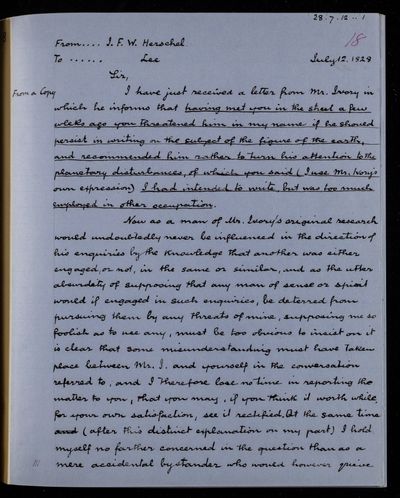 28.7.12..1
18
From.... J. F. W. Herschel.
To ...... Lee July 12. 1828
Sir,
From a Copy I have just received a letter from Mr. Ivory in
which he informs that having met you in the street a few
weeks ago you threatened him in my name if he should
persist in writing on the subject of the figure of the earth,
and recommended him rather to turn his attention to the
planetary disturbances, of which you said (I use Mr. Ivory's
own expression) I had intended to write, but was too much
employed in other occupation.
Now as a man of Mr. Ivory's original research
would undoubtedly never be influenced in the direction of
his enquiries by the knowledge that another was either
engaged, or not, in the same or similar, and as the utter
absurdety of supposing that any man of sense or spirit
would if engaged in such enquiries, be deterred from
pursuing them by any threats of mine, supposing me so
foolish as to use any, must be too obvious to insist on it
is clear that some misunderstanding must have taken
place between Mr. I. and yourself in the conversation
referred to, and I therefore lose no time in reporting the
matter to you, that you may, if you think it worth while
for your own satisfaction, see it rectified. At the same time
and (after this distinct explanation on my part) I hold
myself no farther concerned in the question than as a
mere accidental bystander who would however grieve